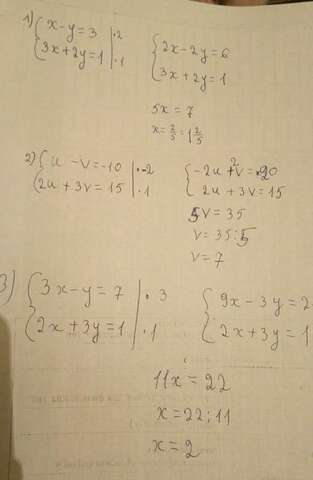 1) { x - y = 3 | · 2
3x + 2y = 1 | · 1
{ 2x - 2y = 6
3x + 2y = 1
5x = 7
x = 7/5 = 1 2/5
2) { u - v = -10 | · -2
2u + 3v = 15 | · 1
{ -2u + 2v = 20
2u + 3v = 15
5v = 35
v = 35 : 5
v = 7
3) { 3x - y = 7 | · 3
2x + 3y = 1 | · 1
{ 9x - 3y = 2
2x + 3y = 1
11x = 22
x = 22 : 11
x = 2